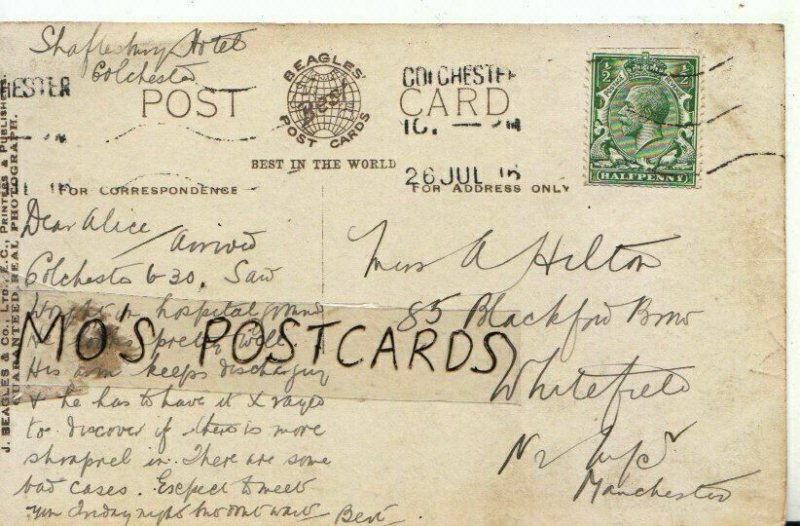 Shaftesbury Hotel
Colchester
CHESTER
POST
BEAGLES'
Best
POST CARDS
BEST IN THE WORLD
COLCHESTER
CARD
26 JUL 16
HALFPENNY
FOR CORRESPONDENCE
FOR ADDRESS ONLY
J. BEAGLES & CO., LTD., E.C., PRINTERS & PUBLISHERS.
GUARANTEED REAL PHOTOGRAPH.
Dear Alice
Arrived
Colchester 6-30. Saw
in hospital ground
He looks pretty well.
His arm keeps discharging
& he has to have it X rayed
to discover if there is more
shrapnel in. There are some
bad cases. Expect to meet
you Friday night but dont wait Bert
MO'S POSTCARDS
Miss A Hilton
85 Blackford Brow
Whitefield
Nr
Manchester